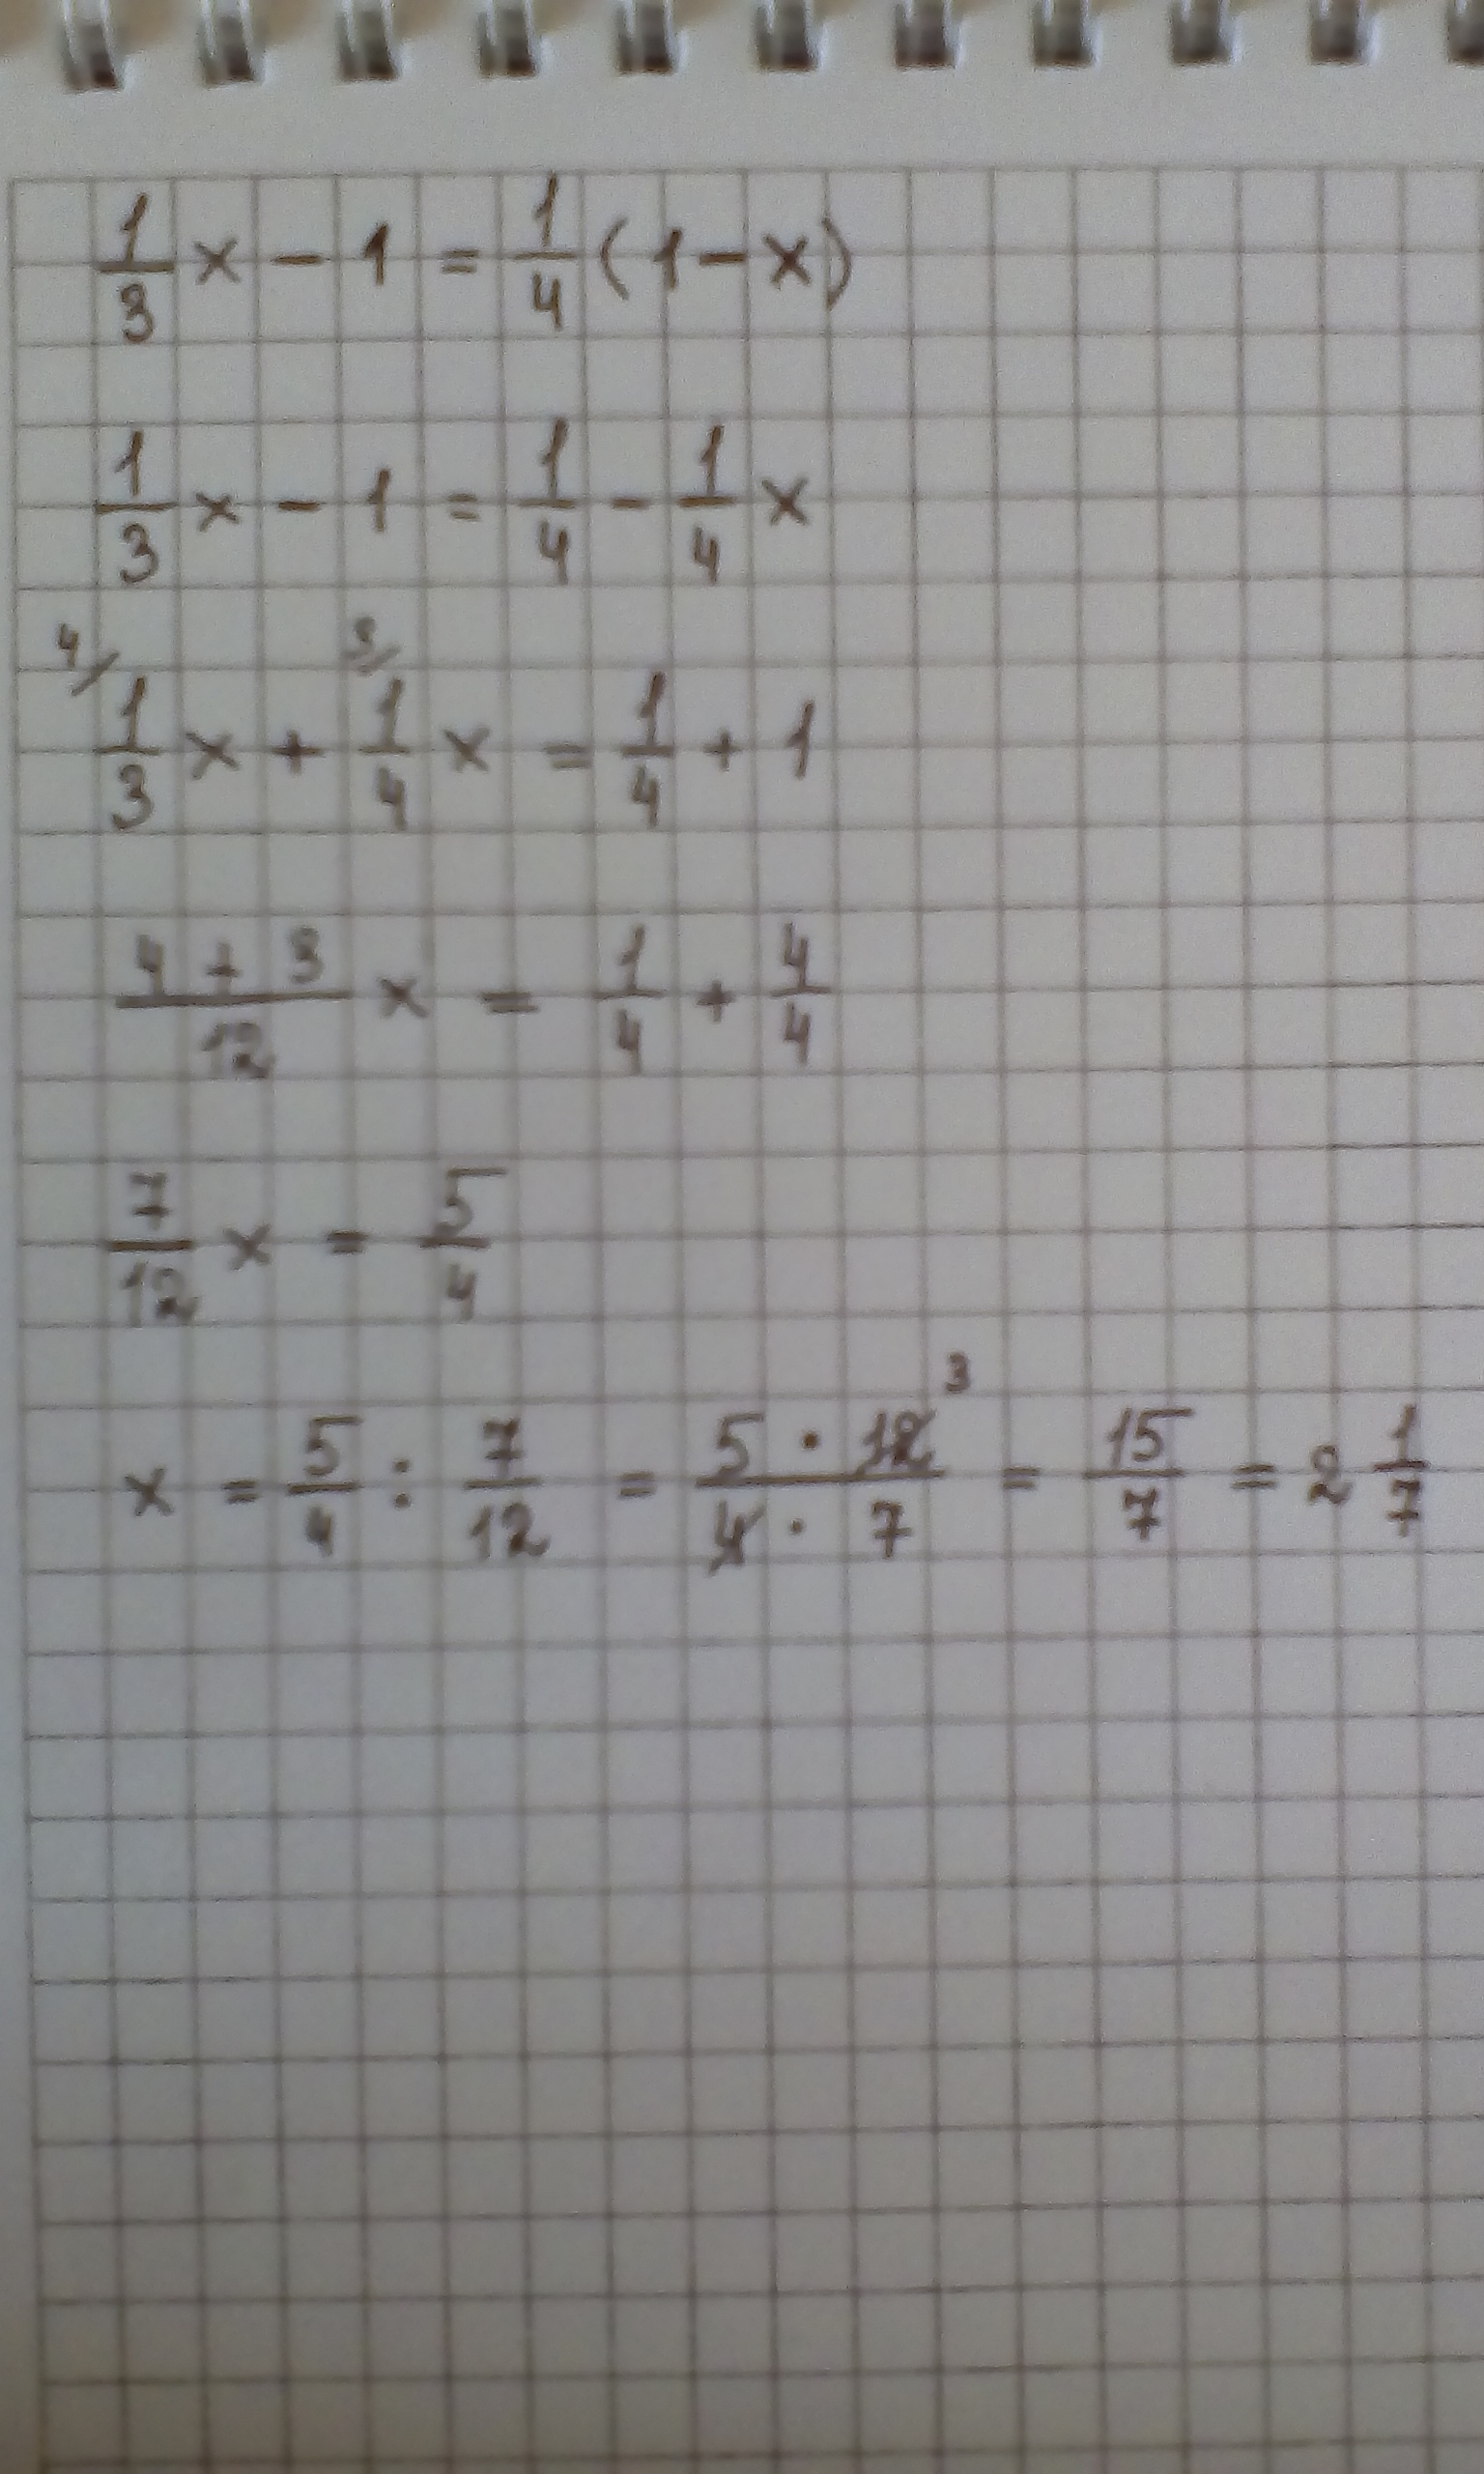 1/3 x - 1 = 1/4 (1 - x)
1/3 x - 1 = 1/4 - 1/4 x
4/ 1/3 x + 3/ 1/4 x = 1/4 + 1
(4 + 3)/12 x = 1/4 + 4/4
7/12 x = 5/4
x = 5/4 : 7/12 = (5 · 12 3)/(4 · 7) = 15/7 = 2 1/7